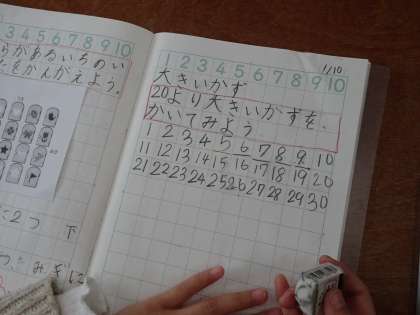 3 4 5 6 7 8 9 10
らがあるいちのい
をかんがえよう。
に2つ
下
1/10
1 2 3 4 5 6 7 8 9 10
大きいかず
20より大きいかずを、
かいてみよう
1 2 3 4 5 6 7 8 9 10
11 12 13 14 15 16 17 18 19 20
21 22 23 24 25 26 27 28 29 30